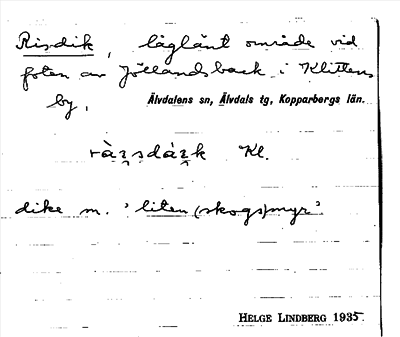 Risdik, låglänt område vid
foten av Jöllandsback i Klittens
by, Älvdalens sn, Älvdals tg, Kopparbergs län.
Kl.
dike m. 'liten (skogs)myr'.
HELGE LINDBERG 1935.